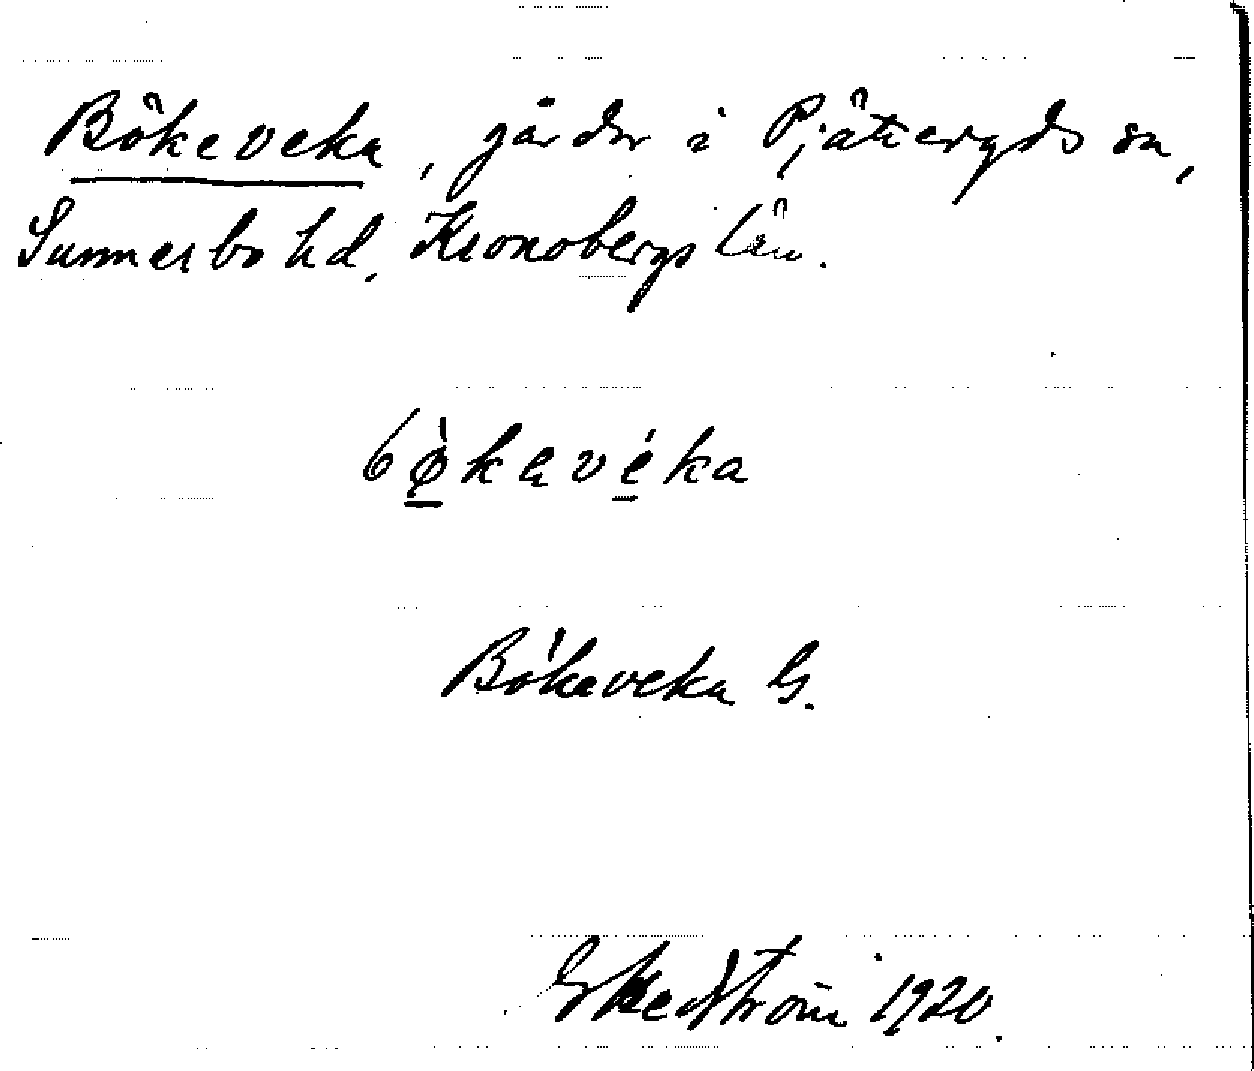 Bökeveka, gårdar i Pjätteryds sn,
Sunnerbo hd, Kronobergs län.
bø̀kavéka
Bökeveka G.
G Hedström 1920.